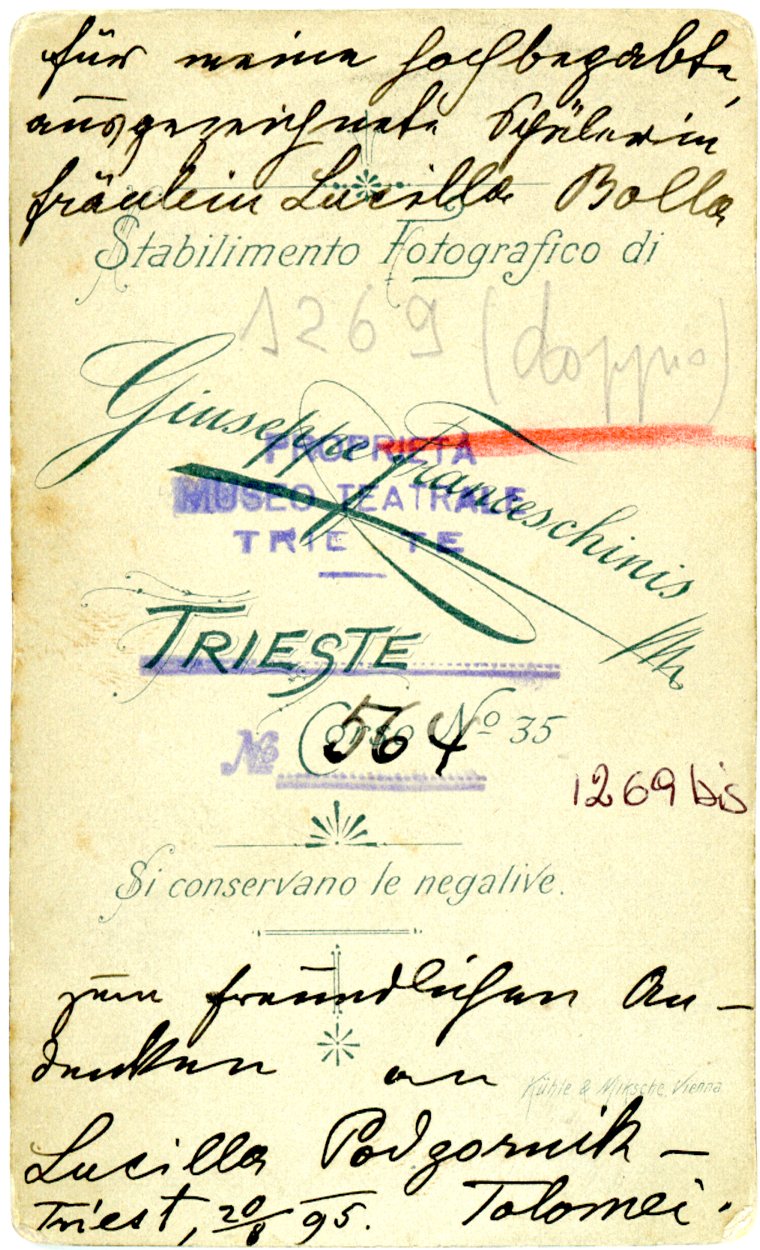 für meine hochbegabte,
ausgezeichnete Schülerin
fräulein Lucilla Bolla
Stabilimento Fotografico di
1269 (doppio)
Giuseppe Franceschinis
PROPRIETÀ
MUSEO TEATRALE
TRIE TE
TRIESTE
Corso No 35
No 564
1269 bis
Si conservano le negative.
zum freundlichen An-
denken an
Kühle & Miksche, Vienna
Lucilla Podgornik-
Tolomei.
Triest, 20/8 95.